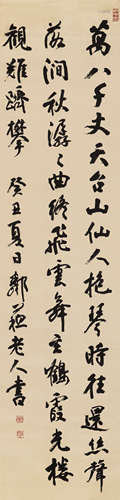 萬八千丈天台山仙人抱琴時往還絲聲
落澗秋潺〻曲終飛雲舞玄鶴霞光樓
觀難躋攀 癸丑夏日鄭蘇老人書